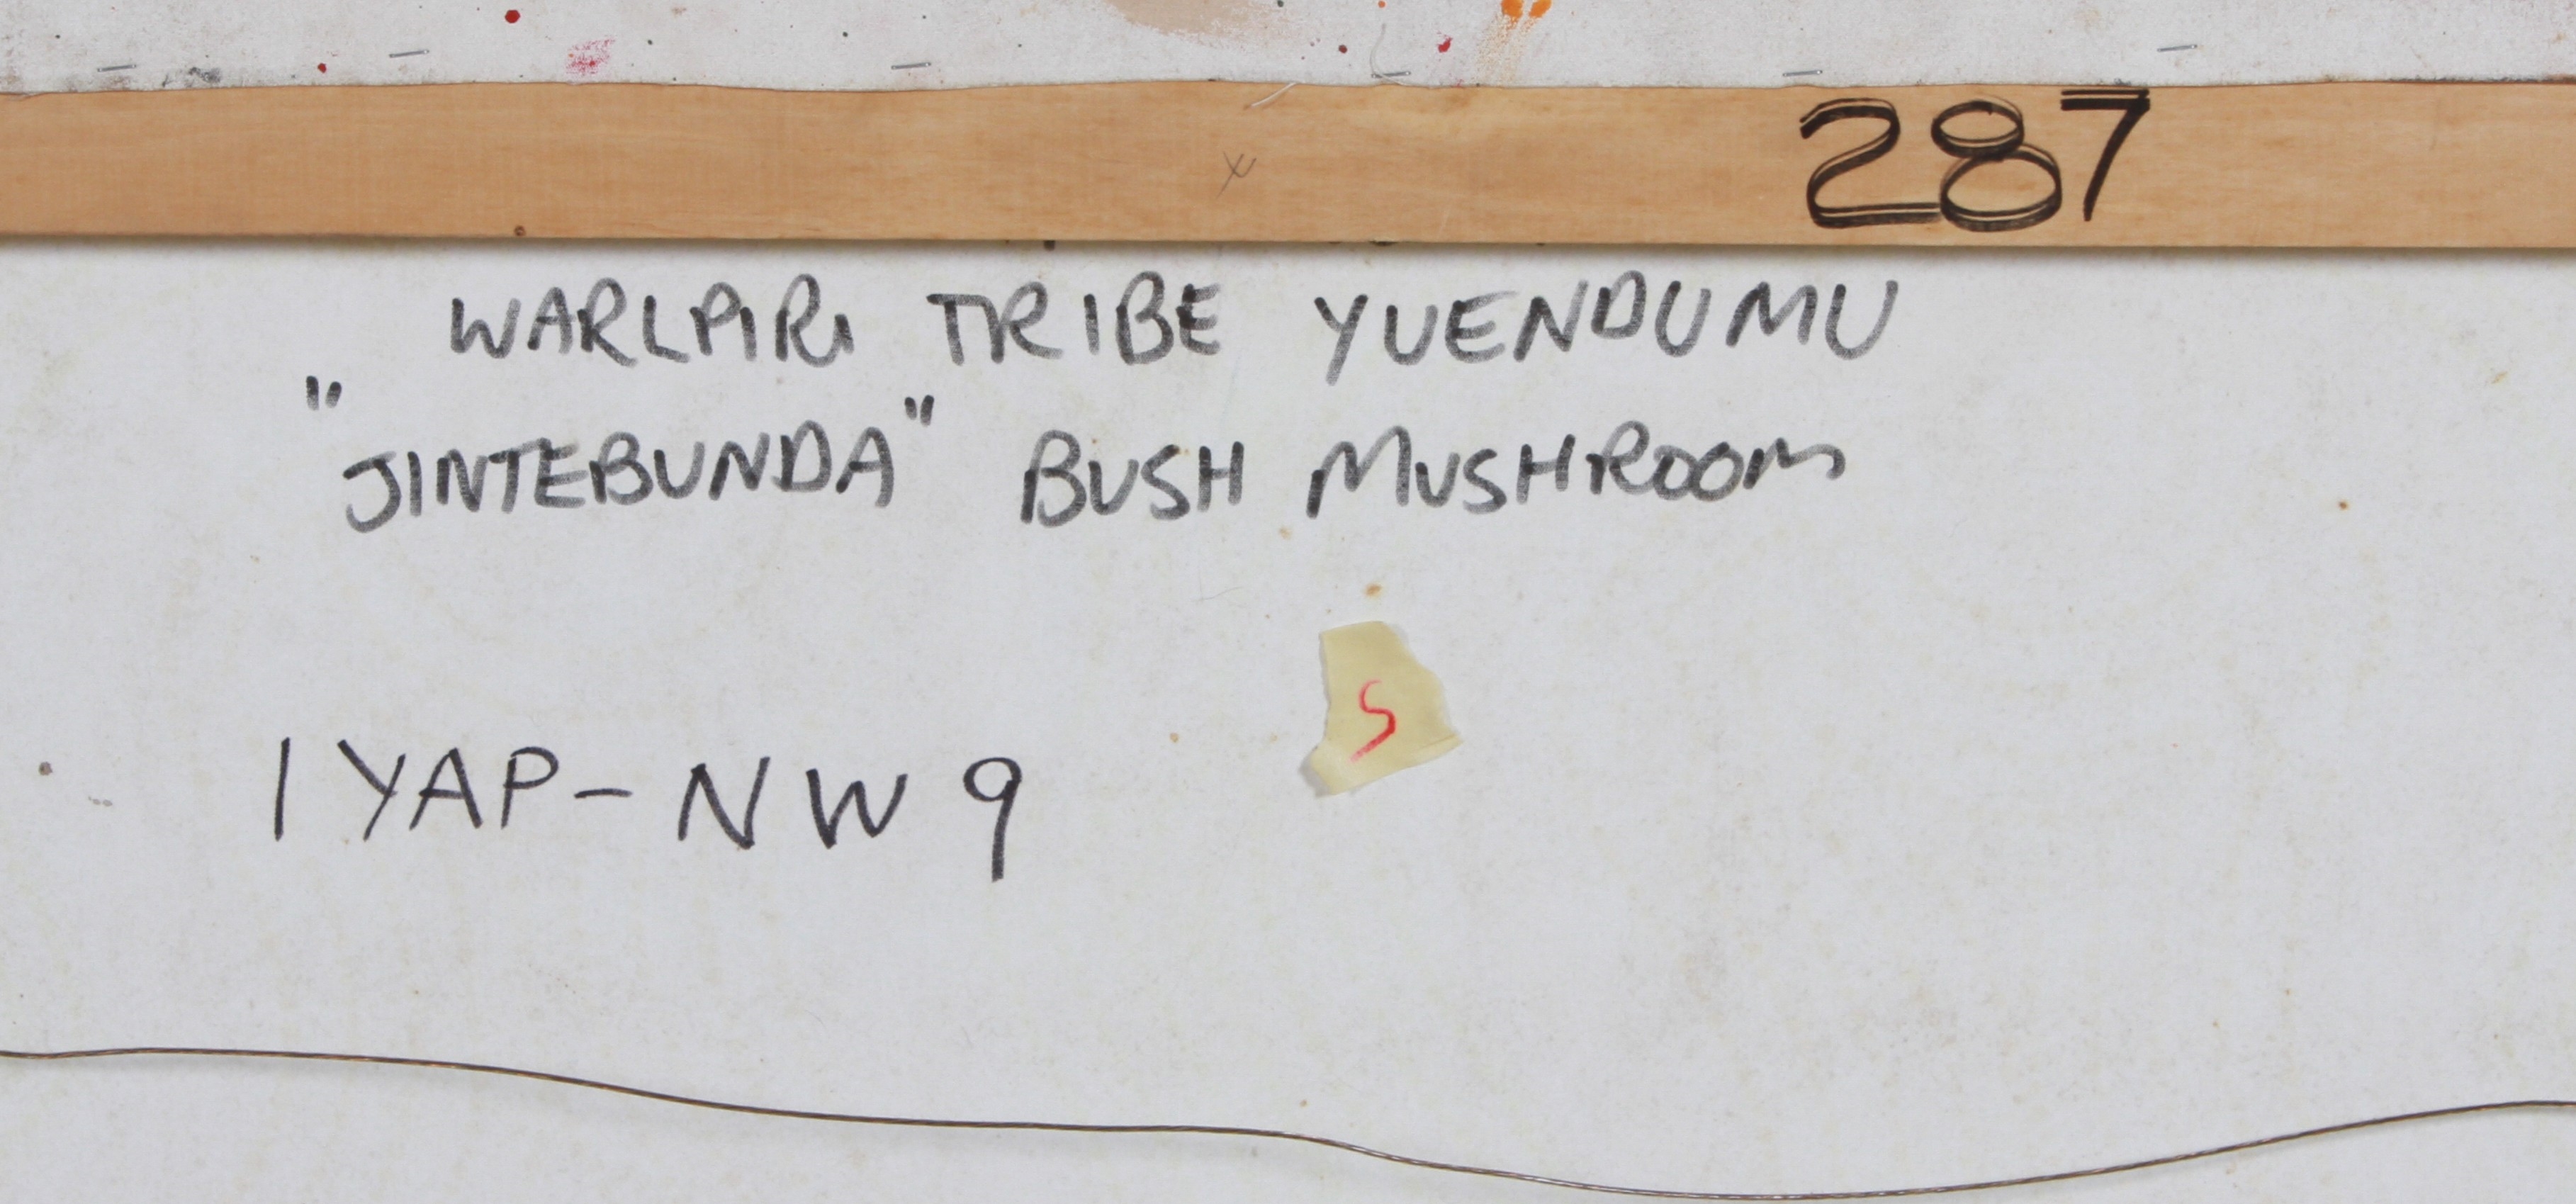 287
WARLPIRI TRIBE YUENDUMU
"JINTEBUNDA" BUSH MUSHROOM
S
1YAP-NW9